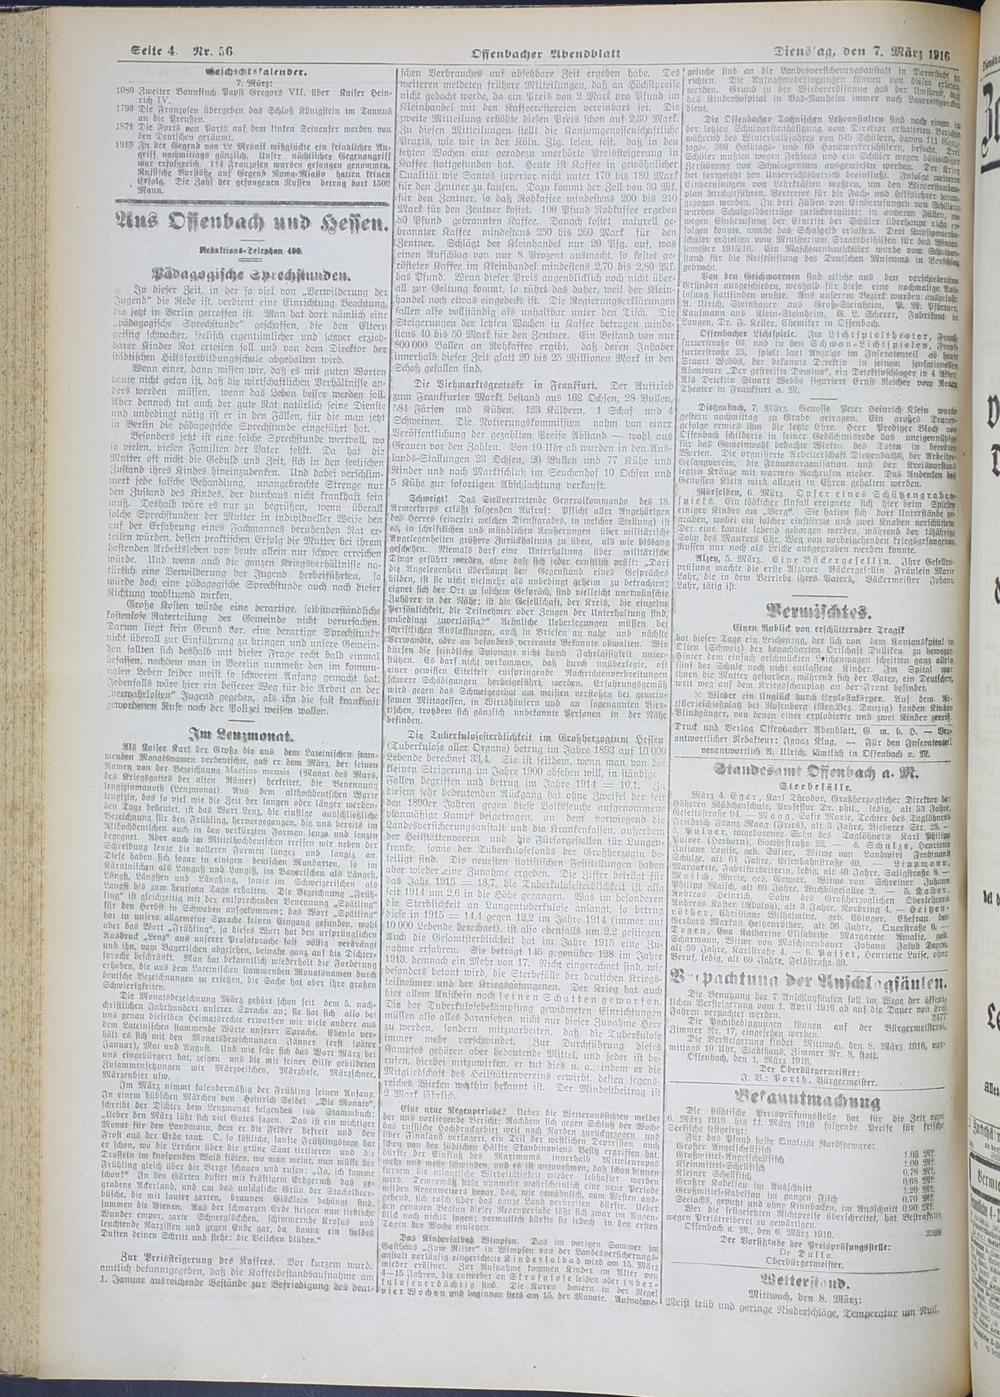 Seite 4. Nr. 56
Offenbacher Abendblatt
Dienstag, den 7. März 1916
Geschichtskalender.
7. März:
1080 Zweiter Bannfluch Papst Gregors VII. über Kaiser Hein-
rich IV.
1793 Die Franzosen übergeben das Schloß Königstein im Taunus
an die Preußen.
1871 Die Forts von Paris auf dem linken Seineufer werden von
den Deutschen geräumt.
1915 In der Gegend von Le Mesnil mißglückte ein feindlicher An-
griff nachmittags gänzlich. Unser nächtlicher Gegenangriff
war erfolgreich. 140 Franzosen wurden gefangen genommen.
Russische Vorstöße auf Gegend Rawa-Miasto hatten keinen
Erfolg. Die Zahl der gefangenen Russen betrug dort 1500
Mann.
Aus Offenbach und Hessen.
Redaktions-Telephon 496.
Pädagogische Sprechstunden.
In dieser Zeit, in der so viel von „Verwilderung der
Jugend" die Rede ist, verdient eine Einrichtung Beachtung,
die jetzt in Berlin getroffen ist. Man hat dort nämlich eine
„pädagogische Sprechstunde" geschaffen, die den Eltern
geistig schwacher, seelisch eigentümlicher und schwer erzieh-
barer Kinder Rat erteilen soll und von dem Direktor der
städtischen Hilfsfortbildungsschule abgehalten wird.
Wenn einer, dann wissen wir, daß es mit guten Worten
heute nicht getan ist, daß die wirtschaftlichen Verhältnisse an-
ders werden müssen, wenn das Leben besser werden soll.
Aber dennoch tut auch der gute Rat natürlich seine Dienste
und unbedingt nötig ist er in den Fällen, für die man jetzt
in Berlin die pädagogische Sprechstunde eingeführt hat.
Besonders jetzt ist eine solche Sprechstunde wertvoll, wo
so vielen, vielen Familien der Vater fehlt. Da hat die
Mutter oft nicht die Geduld und Zeit, sich in den seelischen
Zustand ihres Kindes hineinzudenken. Und dabei verschlim-
mert jede falsche Behandlung, unangebrachte Strenge nur
den Zustand des Kindes, der durchaus nicht krankhaft sein
muß. Deshalb wäre es nur zu begrüßen, wenn überall
solche Sprechstunden der Mutter in individueller Weise den
auf der Erfahrung eines Fachmannes beruhenden Rat er-
teilen würden, dessen praktischen Erfolg die Mutter bei ihrem
hastenden Arbeitsleben von heute allein nur schwer erreichen
würde. Und wenn auch die ganzen Kriegsverhältnisse na-
türlich eine Verwilderung der Jugend herbeiführten, so
würde doch eine pädagogische Sprechstunde auch nach dieser
Richtung wohltuend wirken.
Große Kosten würde eine derartige, selbstverständliche
kostenlose Raterteilung der Gemeinde nicht verursachen.
Darum liegt kein Grund vor, eine derartige Sprechstunde
nicht überall zur Einführung zu bringen und unsere Gemein-
den sollten sich deshalb mit dieser Frage recht bald einmal
befassen, nachdem man in Beerlin nunmehr den im kommu-
nalen Leben leider meist so schweren Anfang gemacht hat.
Jedenfalls wäre hier ein besserer Weg für die Arbeit an der
„verwahrlosten" Jugend gegeben, als ihn die fast krankhaft
gewordenen Rufe nach der Polizei weisen wollen.
Im Lenzmonat.
Als Kaiser Karl der Große die aus dem Lateinischen stam-
menden Monatsnamen verdeutschte, gab er dem März, der seinen
Namen von der Bezeichnung Martins mensis (Monat des Mars,
des Kriegsgottes der alten Römer) herleitet, die Benennung
lengizinmanoth (Lenzmonat). Aus dem althochdeutschen Worte
lengizin, das so viel wie die Zeit der langen oder länger werden-
den Tage bedeutet, ist das Wort Lenz, die einstige ausschließliche
Bezeichnung für den Frühling, hervorgegangen, die uns bereits im
Althochdeutschen auch in den verkürzten Formen lenzo und lenza
begegnet. Aber auch im Mittelhochdeutschen treffen wir neben der
Schreibung lenze die volleren Formen langez und langiz an.
Diese haben sich sogar in einigen deutschen Mundarten, so im
Kärntnischen als Langaß und Langiß, im Bayerischen als Längeß,
Längß, Längsten und Längsing, sowie im Schweizerischen als
Langsi bis zum heutigen Tage erhalten. Die Bezeichnung „Früh-
ling" ist gleichzeitig mit der entsprechenden Benennung „Spätling"
für den Herbst in Schwaben aufgekommen; das Wort „Spätling"
hat in unsere allgemeine Sprache keinen Eingang gefunden, wohl
aber das Wort „Frühling", ja dieses Wort hat den ursprünglichen
Ausdruck „Lenz" aus unserer Prosasprache fast völlig verdrängt
und ihn, vom Bayerischen abgesehen, beinahe ganz auf die Dichter-
sprache beschränkt. Man hat bekanntlich wiederholt die Forderung
erhoben, die aus dem Lateinischen stammenden Monatsnamen durch
deutsche Bezeichnungen zu ersetzen, die Sache hat aber ihre großen
Schwierigkeiten.
Die Monatsbezeichnung März gehört schon seit dem 5. nach-
christlichen Jahrhundert unserer Sprache an; sie hat sich also bei
uns genau dieselben Heimatrechte erworben wie viele andere aus
dem Lateinischen stammende Wörte unserer Sprache. Ebenso ver-
hält es sich mit den Monatsbezeichnungen Jänner (erst später
Januar), Mai und August. Und wie sehr sich das Wort März bei
uns eingebürgert hat, zeigen uns die mit seiner Hilfe gebildeten
Zusammensetzungen wir Märzveilchen, Märzhase, Märzschnee,
Märzenbier usw.
Im März nimmt kalendermäßig der Frühling seinen Anfang.
In einem hübschen Märchen von Heinrich Seidel „Die Monate",
schreibt der Dichter dem Lenzmonat folgendes ins Stammbuch:
„Ueber den März läßt sich viel Gutes sagen. Das ist ein wichtiger
Monat für den Landmann, dem er die Felder befreit und den
Frost aus der Erde taut. O, so köstliche, sanfte Frühlingstage hat
er schon, wo die Lerchen über die grüne Saat tirilieren und die
Drosseln im knospenden Wald flöten, wo man meint, nun müsse der
Frühling gleich über die Berge schauen und rufen: „Ja, ich komme
schon!" In den Gärten duftet mit kräftigen Erdgeruch das ge-
grabene Ackerland, und um das unfägliche Grün der Stachelbeer-
büsche, die mit lauter zarten, braunen Glöcklein behängt sind,
summen die Bienen. Aus der schwarzen Erde steigen nun lieblich
Wunder empor, zarte Schneeglöckchen, schimmernde Krokus und
leuchtende Narzissen, und gegen Ende gar, da hannt ein holdes
Duften deinen Schritt und siehe: die Veilchen blühen."
Zur Preissteigerung des Kaffees. Vor kurzem wurde
amtlich bekanntgegeben, daß die Kaffeebestandsaufnahme am
1. Januar ausreichende Bestände zur Befriedigung des deut-
schen Verbrauches auf absehbare Zeit ergeben habe. Des
weiteren meldeten frühere Mitteilungen, daß an Höchstpreise
nicht gedacht werde, da ein Preis von 2 Mark pro Pfund im
Kleinhandel mit den Kaffeeröstereien vereinbart sei. Die
zweite Mitteilung erhöhte diesen Preis schon auf 2,30 Mark.
Zu diesen Mitteilungen stellt die Konsumgenossenschaftliche
Praxis, wie wir in der Köln. Ztg. lesen, fest, daß in den
letzten Wochen eine geradezu unerhörte Preissteigerung in
Kaffee stattgefunden hat. Heute ist Kaffee in gewöhnlicher
Qualität wie Santos superior nicht unter 170 bis 180 Mark
für den Zentner zu kaufen. Dazu kommt der Zoll von 30 Mk.
für den Zentner, so daß Rohkaffee mindestens 200 bis 210
Mark für den Zentner kostet. 100 Pfund Rohkaffee ergeben
80 Pfund gebrannten Kaffee. Danach kostet naturell ge-
brannter Kaffee mindestens 250 bis 260 Mark für den
Zentner. Schlägt der Kleinhandel nur 20 Pfg. auf, was
einen Aufschlag von nur 8 Prozent ausmacht, so kostet ge-
rösteter Kaffee im Kleinhandel mindestens 2,70 bis 2,80 Mk.
das Pfund. Wenn dieser Preis augenblicklich noch nicht über-
all zur Geltung kommt, so rührt das daher, weil der Klein-
handel noch etwas eingedeckt ist. Die Regierungserklärungen
fallen also vollständig als unhaltbar unter den Tisch. Die
Steigerungen der letzten Wochen in Kaffee betragen minde-
stens 40 bis 50 Mark für den Zentner. Ein Bestand von nur
800 000 Ballen an Rohkaffee ergibt, daß deren Inhaber
innerhalb dieser Zeit glatt 20 bis 25 Millionen Mark in den
Schoß gefallen sind.
Die Viehmarktsgroteske in Frankfurt. Der Auftrieb
zum Frankfurter Markt bestand aus 162 Ochsen, 28 Bullen,
584 Färsen und Kühen, 123 Kälbern, 1 Schaf und 4
Schweinen. Die Notierungskommission nahm von einer
Veröffentlichung der gezahlten Preise Abstand — wohl aus
Grauen vor den Zahlen. Von 10 Uhr ab wurden in den Aus-
lands-Stallungen 23 Ochsen, 20 Bullen und 77 Kühe und
Rinder und nach Marktschluß im Seuchenhof 10 Ochsen und
5 Kühe zur sofortigen Abschlachtung verkauft.
Schweigt! Das Stellvertretende Generalkommando des 18.
Armeekorps erläßt folgenden Aufruf: Pflicht aller Angehörigen
des Heeres (einerlei welchen Dienstgrades, in welcher Stellung) ist
es, in schriftlichen und mündlichen Aeußerungen über militärische
Angelegenheiten größere Zurückhaltung zu üben, als wie bislang
geschehen. Niemals darf eine Unterhaltung über militärische
Dinge geführt werden, ohne daß sich jeder ernstlich prüft: „Darf
die Angelegenheit überhaupt den Gegenstand eines Gespräches
bilden, ist sie nicht vielmehr als unbedingt geheim zu betrachten;
eignet sich der Ort zu solchem Gespräch, sind vielleicht unerwünschte
Zuhörer in der Nähe; ist die Gesellschaft, der Kreis, die einzelne
Persönlichkeit, die Teilnehmer oder Zeugen der Unterhaltung sind,
unbedingt zuverlässig?" Aehnliche Ueberlegungen müssen bei
schriftlichen Auslassungen, auch in Briefen an nahe und nächste
Verwandte, oder an besonders vertraute Bekannte obwalten. Wir
dürfen die feindliche Spionage nicht durch Fahrlässigkeit unter-
stützen. Es darf nicht vorkommen, daß durch unüberlegte, oft
einer gewissen Eitelkeit entspringende Nachrichtenverbreitungen
schwere Schädigungen herbeigeführt werden. Erfahrungsgemäß
wird gegen das Schweigegebot am meisten verstoßen bei gemein-
samen Mittagessen, in Wirtshäusern und an sogenannten Bier-
tischen, trotzdem sich gänzlich unbekannte Personen in der Nähe
befinden.
Die Tuberkulosesterblichkeit im Großherzogtum Hessen
(Tuberkulose aller Organe) betrug im Jahre 1893 auf 10 000
Lebende berechnet 33,4. Sie ist seitdem, wenn man von der
kleinen Steigerung im Jahre 1900 absehen will, in ständige
Fallen begriffen und betrug im Jahre 1914 = 16,1. Zu
diesem sehr bedeutenden Rückgang hat ohne Zweifel der seit
den 1890er Jahren gegen diese Volksseuche aufgenommene
planmäßige Kampf beigetragen, an dem vorwiegend die
Landesversicherungsanstalt und die Krankenkassen, außerdem
der Heilstättenverein und die Fürsorgestellen für Lungen-
kranke, sowie der Tuberkulosefonds der Großherzogin be-
teiligt sind. Die neuesten statistischen Feststellungen haben
aber wieder eine Zunahme ergeben. Die Ziffer beträgt für
das Jahr 1915 = 18,7, die Tuberkulosesterblichkeit ist also
seit 1914 um 2,6 in die Höhe gegangen. Was im besonderen
die Sterblichkeit an Lungentuberkulose anlangt, so betrug
diese in 1915 = 14,4 gegen 12,2 im Jahre 1914 (immer auf
10 000 Lebende berechnet), ist also ebenfalls um 2,2 gestiegen.
Auch die Gesamtsterblichkeit hat im Jahre 1915 eine Zu-
nahme erfahren. Sie beträgt 145 gegenüber 128 im Jahre
1913, demnach ein Mehr von 17. Nicht eingerechnet sind, wie
besonders betont wird, die Sterbefälle der deutschen Kriegs-
teilnehmer und der Kriegsgefangenen. Der Krieg hat auch
hier allem Anschein nach seinen Schatten geworfen.
Die der Tuberkulosebekämpfung gewidmeten Einrichtungen
müssen also alles daransetzen, nicht nur dieser Zunahme Herr
zu werden, sondern mitzuarbeiten, daß die Tuberkulose
immer mehr verschwindet. Zur Durchführung dieses
Kampfes gehören aber bedeutende Mittel, und jeder ist be-
rufen, hierbei mitzuwirken, er tut dies u. a., indem er die
Mitgliedschaft des Heilstättenvereins erwirbt, dessen segens-
reiches Wirken weithin bekannt ist. Der Mindestbeitrag ist
2 Mark jährlich.
Eine neue Regenperiode? Ueber die Wetteraussichten meldet
der uns vorliegende Bericht: Nachdem sich gegen Schluß der Woche
das russische Hochdruckgebiet weit nach Norden zurückgezogen und
über Finnland verlagert, ein Teil der westlichen Depression auch
schon von der südlichen Hälfte Skandinaviens Besitz ergriffen hat,
dürfte der Einfluß des Maximums innerhalb Mitteleuropas
mehr und mehr schwinden, und es ist anzunehmen, daß schon binnen
kurzem auch die alte Wirbeltätigkeit wieder lebhafter werden
wird. Demgemäß steht nunmehr wahrscheinlich eine neue Periode
milden Regenwetters bevor, das, wie gewöhnlich, vom Westen aus-
gehend, sich rasch über das ganze Land verbreiten dürfte. Ueber
den genauen Beginn dieser Regenperiode läßt sich zwar im Augen-
blick noch nichts sagen; vermutlich dürfte sie jedoch in den ersten
Tagen der Woche einsetzen.
Das Kindersolbad Wimpfen. Das im vorigen Sommer im
Gasthaus „Zum Ritter" in Wimpfen von der Landesversicherungs-
anstalt vorläufig eingerichtete Kindersolbad wird am 15. März
wieder eröffnet. Zur Aufnahme kommen Kinder im Alter von
4—15 Jahren, die entweder an Skrofulose leiden oder tuber-
kuloseverdächtig sind. Die Kuren dauern in der Regel
vier Wochen und beginnen stets am 15. der Monate. Aufnahme-
gesuche sind an die Landesversicherungsanstalt in Darmstadt zu
richten. Die Aufnahmebedingungen können von dieser erbeten
werden. Grund zu der Wiedereröffnung gab der Umstand, daß
das Kinderhospital in Bad-Nauheim immer noch Lazarettzwecken
dient.
Die Offenbacher Technischen Lehranstalten sind nach einem in
der letzten Schulvorstandssitzung vom Direktor erstatteten Berichte
während des Winterhalbjahres von 549 Schülern, davon 111 Ganz-
tags-, 369 Halbtags- und 69 Handwerkerschülern, besucht. Drei
Schüler mußten wegen Fehlens und ein Schüler wegen böswilliger
Versäumung von Schulzeugnissen ausgewiesen werden. Der Krieg
hat auch den Unterrichtsbetrieb beeinflußt. Infolge weiterer
Einberufungen von Lehrkräften mußten, um den Winterstunden-
plan durchzuführen, Vertreter für die Fach- und Hilfslehrer heran-
gezogen werden. In drei Fällen von Einberufungen von Schülern
wurden Schulgeldbeiträge zurückvergütet; in anderen Fällen, wo
wegen Einberufung der Eintritt der Schüler überhaupt nicht er-
folgen konnte, wurde das Schulgeld erlassen. Drei Kunstgewerbe-
schüler erhielten vom Ministerium Staatsbeihilfen für das Winter-
semester 1915/16. Ein Maschinenbauschüler wurde vom Schulvor-
stand für die Reisestiftung des Deutschen Museums in Vorschlag
gebracht.
Von den Geschworenen sind etliche aus den verschiedensten
Gründen ausgeschieden, weshalb für diese eine nochmalige Aus-
losung stattfinden mußte. Aus unserem Bezirk wurden ausgelost:
A. Ulrich, Steinhauer aus Groß-Steinheim, P. M. Pfortner,
Kaufmann aus Klein-Steinheim, G. L. Scherer, Fabrikant in
Langen, Dr. F. Keller, Chemiker in Offenbach.
Offenbacher Lichtspiele. Im Lichtspieltheater, Frank-
furterstraße 63, und in den Schwan-Lichtspielen, Frank-
furterstraße 25, spielt laut Anzeige im Inseratenteil ab heute
Stuart Webbs, der bekannte Detektiv in seinem sensationellen
Abenteuer „Der gestreifte Domino", ein Detektivschlager in 4 Akten.
Als Detektiv Stuart Webbs figuriert Ernst Reicher vom Neuen
Theater in Frankfurt a. M.
Dietzenbach, 7. März. Genosse Peter Heinrich Klein wurde
gestern nachmittag zu Grabe getragen. Ein großes Trauer-
gefolge erwies ihm die letzte Ehre. Herr Prediger Bloch von
Offenbach schilderte in seiner Gedächtnisrede das uneigennützige
für das Gemeinwohl bedachte Wirken des Toten in beredten
Worten. Die organisierte Arbeiterschaft Dietzenbachs, der Arbeiter-
Gesangverein, die Frauenorganisation und der Kreisvorstand
legten Kränze mit warmen Nachrufen nieder. Das Andenken des
Genossen Klein wird allezeit in Ehren gehalten werden.
Mörfelden, 6. März. Opfer eines Schützengraben-
spiels. Ein tödlicher Unfall ereignete sich hier beim Spielen
einiger Kinder am „Berg". Sie hatten sich dort Unterstände ge-
graben, wobei ein solcher einstürzte und zwei Knaben verschüttete.
Der eine konnte lebend geborgen werden, während der 12jährige
Sohn des Maurers Chr. Weg von vorbeigehenden kriegsgefangenen
Russen nur noch als Leiche ausgegraben werden konnte.
Alzey, 5. März. Eine Bäckergesellin. Ihre Gesellen-
prüfung machte die erste Alzeyer Bäckergesellin Fräulein Marie
Lahr, die in dem Betriebe ihres Vaters, Bäckermeister Johann
Lahr, tätig ist.
Vermischtes.
Einen Anblick von erschütternder Tragik
bot dieser Tage ein Leichenzug, der sich von dem Kantonsspital in
Olten (Schweiz) der benachbarten Ortschaft Dulliken zu bewegte.
Hinter dem einfach geschmückten Leichenwagen schritten ganz allein
fünf der Schule noch nicht entlassene Kinder. Im Spital war
ihnen die Mutter gestorben, während sich der Vater, ein Deutscher,
weit weg auf dem Kriegsschauplatz an der Front befindet.
× Wieder ein Unglück durch Geschoßkörper. Auf dem Ar-
tillerieschießplatz bei Hosenberg (Reg.Bez. Danzig) fanden Kinder
Blindgänger, von denen einer explodierte und zwei Kinder zerriß.
Druck und Verlag Offenbacher Abendblatt, G. m. b. H. — Ver-
antwortlicher Redakteur: Ignaz King. — Für den Inseratenteil
verantwortlich A. Ulrich. Sämtlich in Offenbach a. M.
Standesamt Offenbach a. M.
Sterbefälle.
März 4. Eger, Karl Theodor, Großherzoglicher Direktor der
Höheren Mädchenschule, Professor Dr. phil., ledig, alt 53 Jahre,
Geleitsstraße 94. — Raag, Sofie Marie, Tochter des Taglöhners
Friedrich Franz Raag (Fries), alt 3 Jahre, Bieberer Str. 25. —
3. Pulver, totgeborener Sohn des Taglöhners Karl Philipp
Pulver (Herborn), Goethestraße 25. — 4. Schulze, Henriette
Juliane Louise, geb. Söller, Witwe von Landwirt Ferdinand
Schulze, alt 61 Jahre, Eisenbahnstraße 40. — Lippmann,
Margarete, Fabrikarbeiterin, ledig, alt 40 Jahre, Saligstraße 8. —
Maisch, Marie, geb. Gemmer, Witwe von Schreiner Johann
Philipp Maisch, alt 60 Jahre, Buchhügelallee 2. — 5. Kaster,
Andreas Heinrich, Sohn des Großherzoglichen Oberlehrers
Andreas Kaster (Adolph), alt 3 Jahre, Nordring 4. — Heitzen-
röther, Christiane Wilhelmine, geb. Ebinger, Ehefrau des
Gerbers Markus Heitzenröther, alt 56 Jahre, Querstraße 6. —
Dogen, Eva Katharine Elisabethe Margarete Amalie, geb.
Scharmann, Witwe von Maschinenbauer Johann Jakob Dogen,
alt 59 Jahre, Karlstraße 4. — 6. Passet, Henriette Luise, ohne
Beruf, ledig, alt 60 Jahre, Feldstraße 39.
Verpachtung der Anschlagsäulen.
Die Benutzung der 7 Anschlagsäulen soll im Wege der öffent-
lichen Versteigerung vom 1. April 1916 ab auf die Dauer von drei
Jahren verpachtet werden. 3477
Die Pachtbedingungen können auf der Bürgermeisterei,
Zimmer Nr. 17, eingesehen werden.
Die Versteigerung findet Mittwoch, den 8. März 1916, vor-
mittags 10 Uhr, Stadthaus, Zimmer Nr. 8, statt.
Offenbach, den 1. März 1916.
Der Oberbürgermeister:
J. V.: Porth, Bürgermeister.
Bekanntmachung
Die städtische Preisprüfungsstelle hat für die Zeit vom
6. März 1916 bis 11. März 1916 folgende Preise für frische
Seefische festgesetzt:
Für das Pfund beste Qualität Nordseeware:
Großer Angelschellfisch 1.05 Mk.
Großmittel-Angelschellfisch 1.00 Mk.
Kleinmittel-Schellfisch 0.78 Mk.
Kleiner Schellfisch 0.68 Mk.
Großer Kabeljau im Ausschnitt 1.20 Mk.
Großmittel-Kabeljau im ganzen Fisch 0.70 Mk.
Seelachs, geputzt und ohne Kinnbacken, im Ausschnitt 0.90 Mk.
Wer die festgesetzten Richtpreise überschreitet, hat Bestrafung
wegen Preistreiberei zu gewärtigen.
Offenbach a. M., den 6. März 1916. 3598
Der Vorsitzende der Preisprüfungsstelle:
Dr. Dullo.
Oberbürgermeister.
Wetterstand.
Mittwoch, den 8. März:
Meist trüb und geringe Niederschläge, Temperatur um Null.